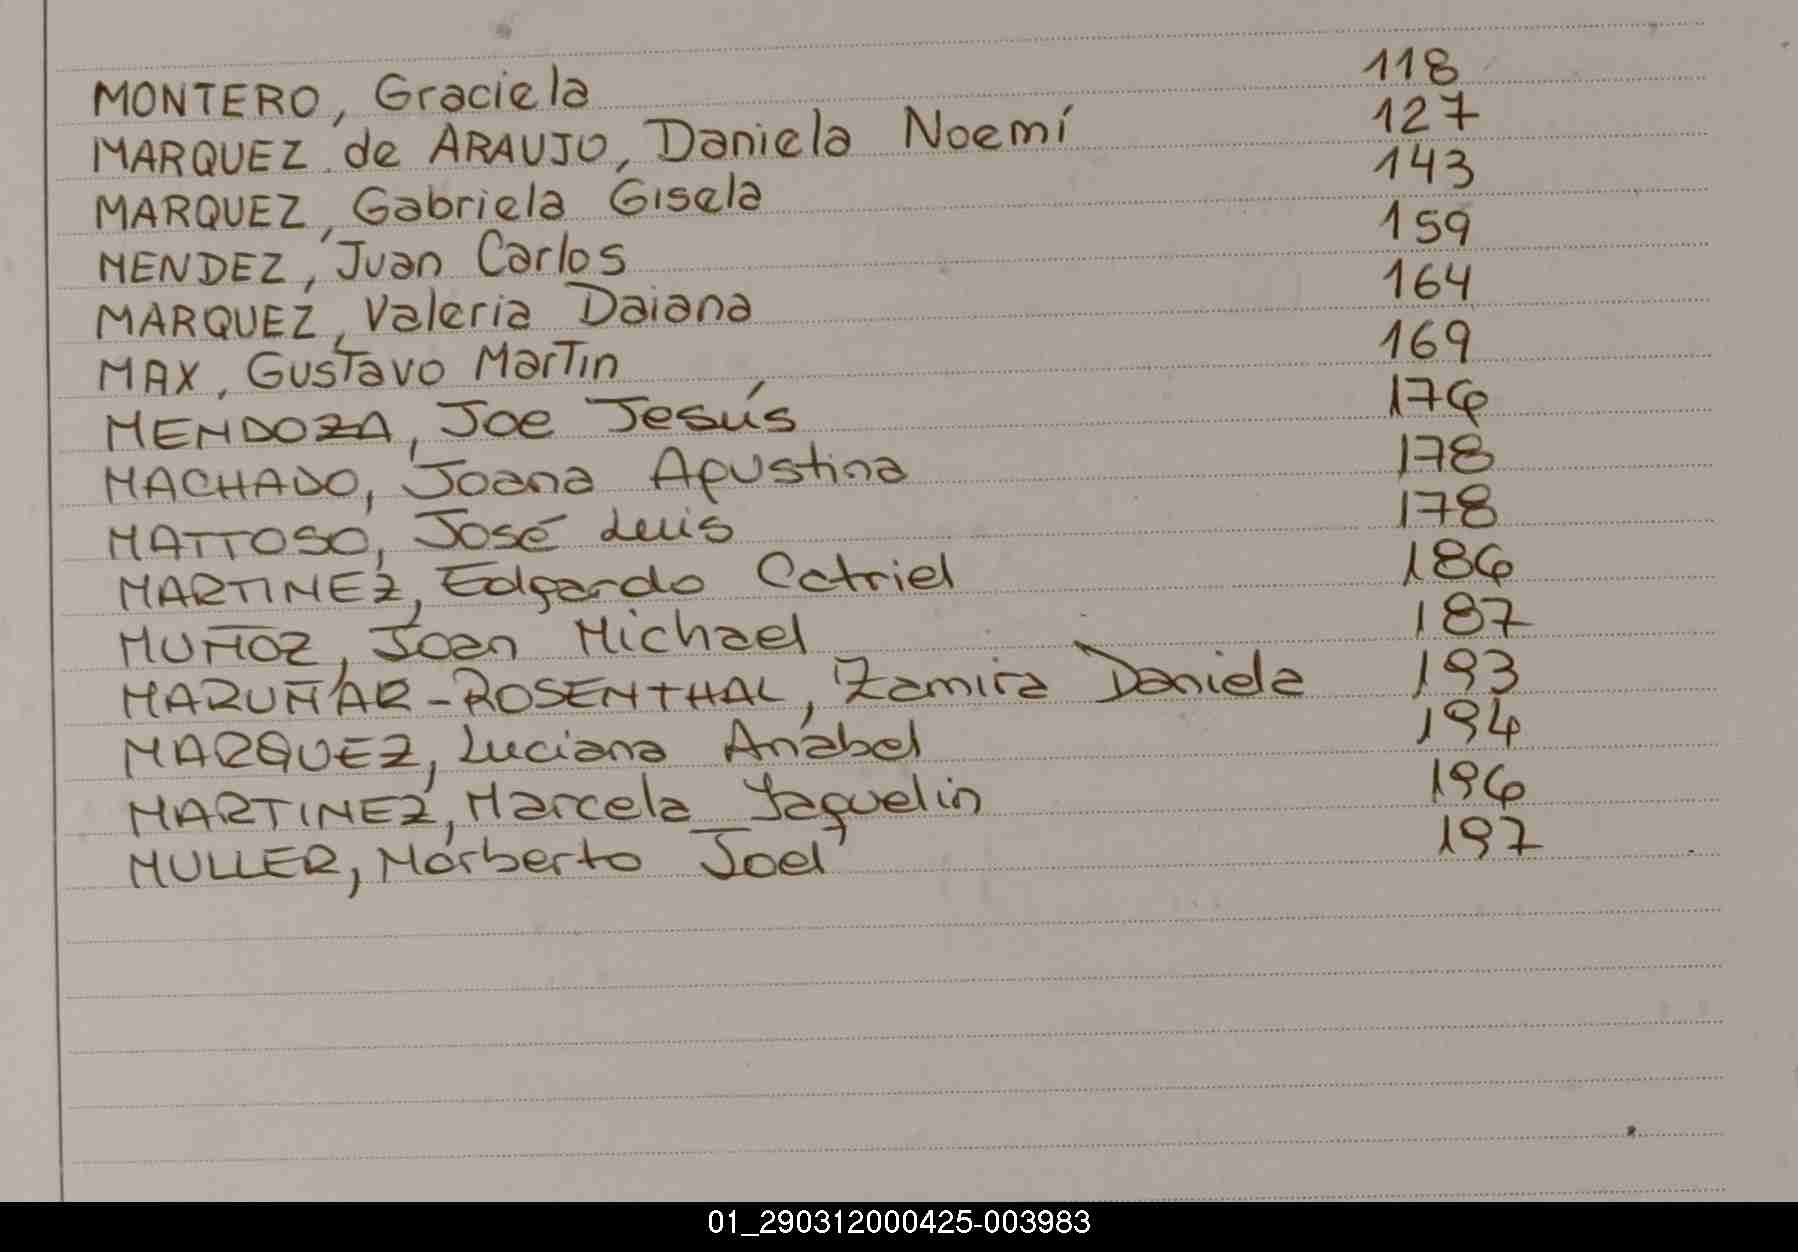 MONTERO, Graciela 118
MARQUEZ de ARAUJO, Daniela Noemí 127
MARQUEZ, Gabriela Gisela 143
MENDEZ, Juan Carlos 159
MARQUEZ, Valeria Daiana 164
MAX, Gustavo Martin 169
MENDOZA, Joe Jesús 176
MACHADO, Joana Agustina 178
MATTOSO, José Luis 178
MARTINEZ, Edgardo Catriel 186
MUÑOZ, Joan Michael 187
MARUÑAK-ROSENTHAL, Zamira Daniela 193
MARQUEZ, Luciana Anabel 194
MARTINEZ, Marcela Yaquelin 196
MULLER, Norberto Joel 197
01_290312000425-003983